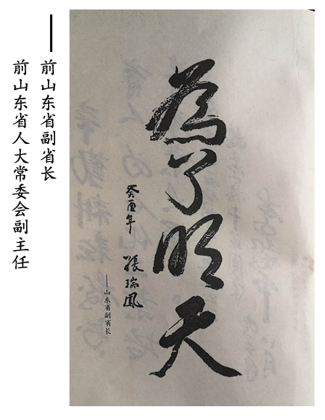 為了明天
癸酉年
張瑞鳳
——山东省副省长
——前山东省副省长
前山东省人大常委会副主任